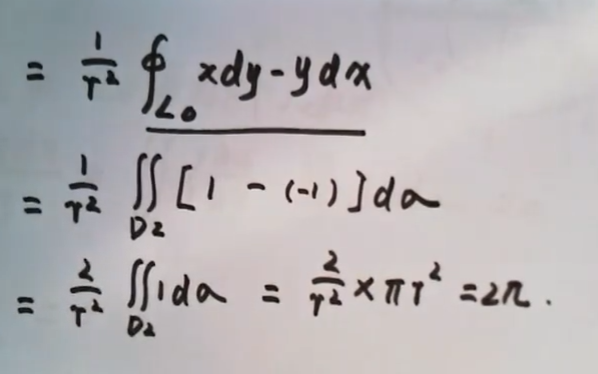 = 1/r² ∮_{L0} xdy - ydx
= 1/r² ∬_{D2} [1 - (-1)]dσ
= 2/r² ∬_{D2} 1dσ = 2/r² × πr² = 2π.